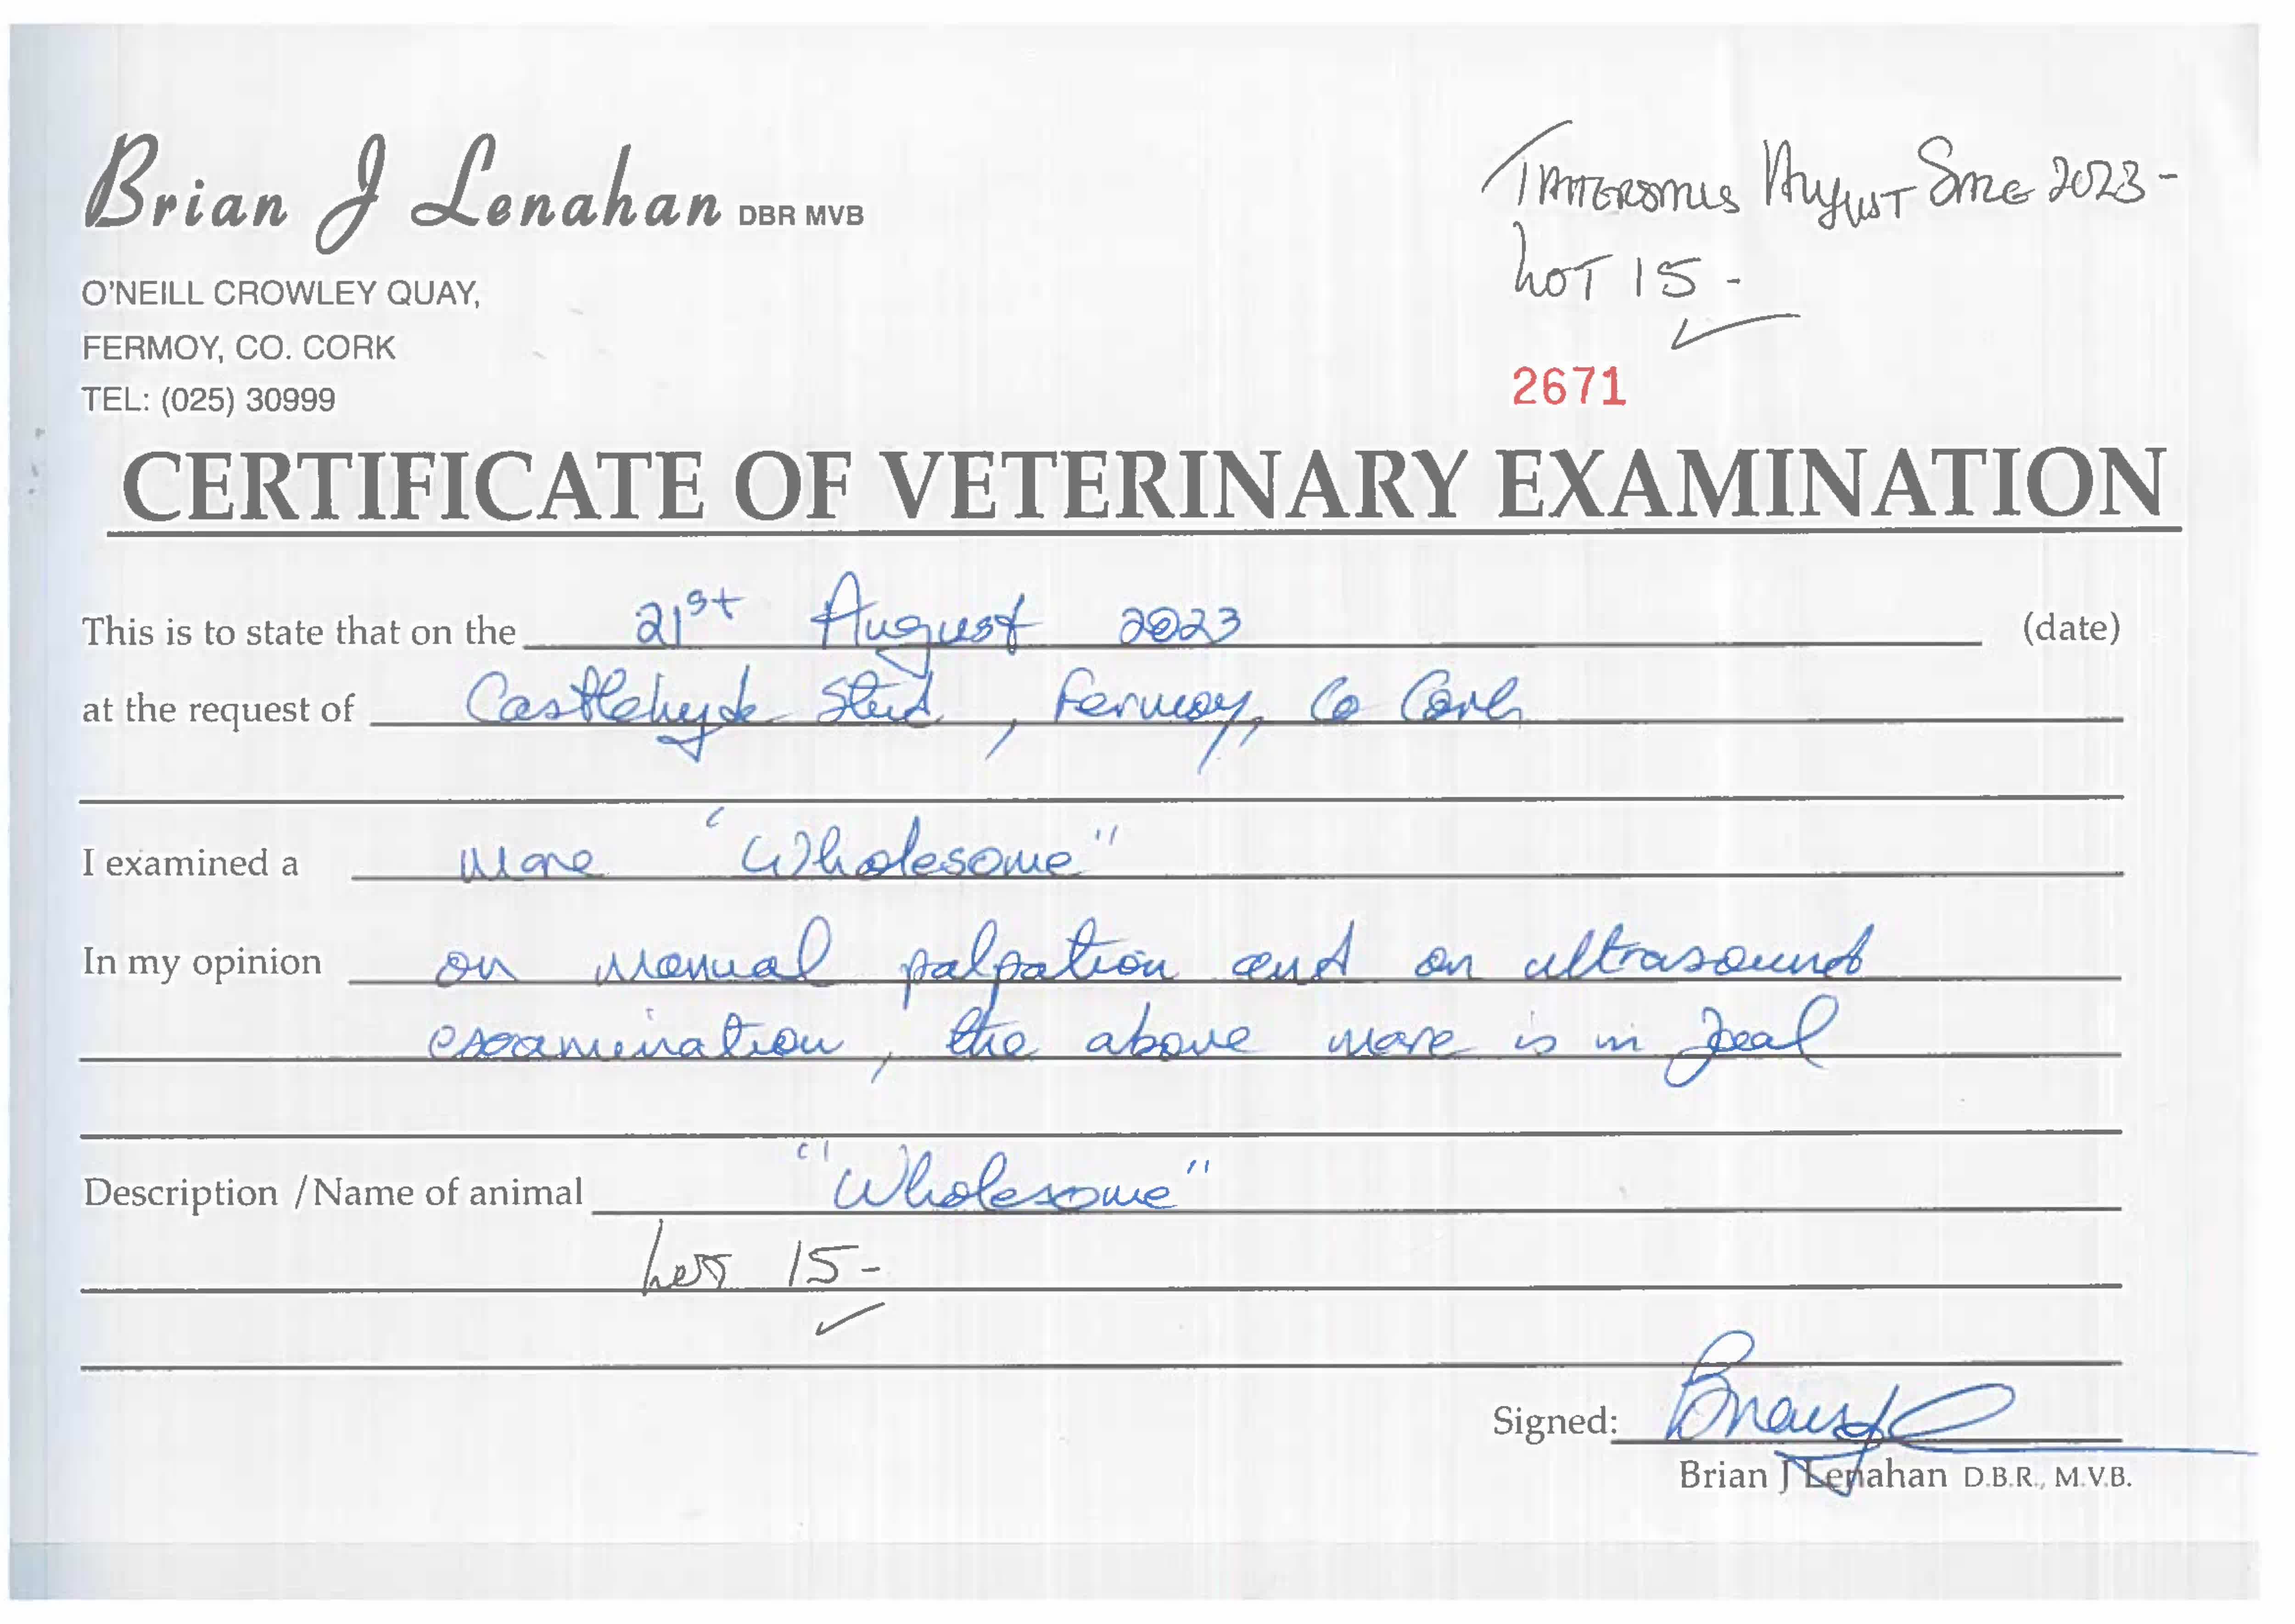 Brian J Lenahan DBR MVB
O'NEILL CROWLEY QUAY,
FERMOY, CO. CORK
TEL: (025) 30999
TATTERSALLS AUGUST SALE 2023 -
LOT 15 -
2671
CERTIFICATE OF VETERINARY EXAMINATION
This is to state that on the 21st August 2023 (date)
at the request of Castlehyde Stud, Fermoy, Co Cork
I examined a Mare "Wholesome"
In my opinion on manual palpation and on ultrasound
examination, the above mare is in foal
Description / Name of animal "Wholesome"
Lot 15 -
Signed:
Brian J Lenahan D.B.R., M.V.B.